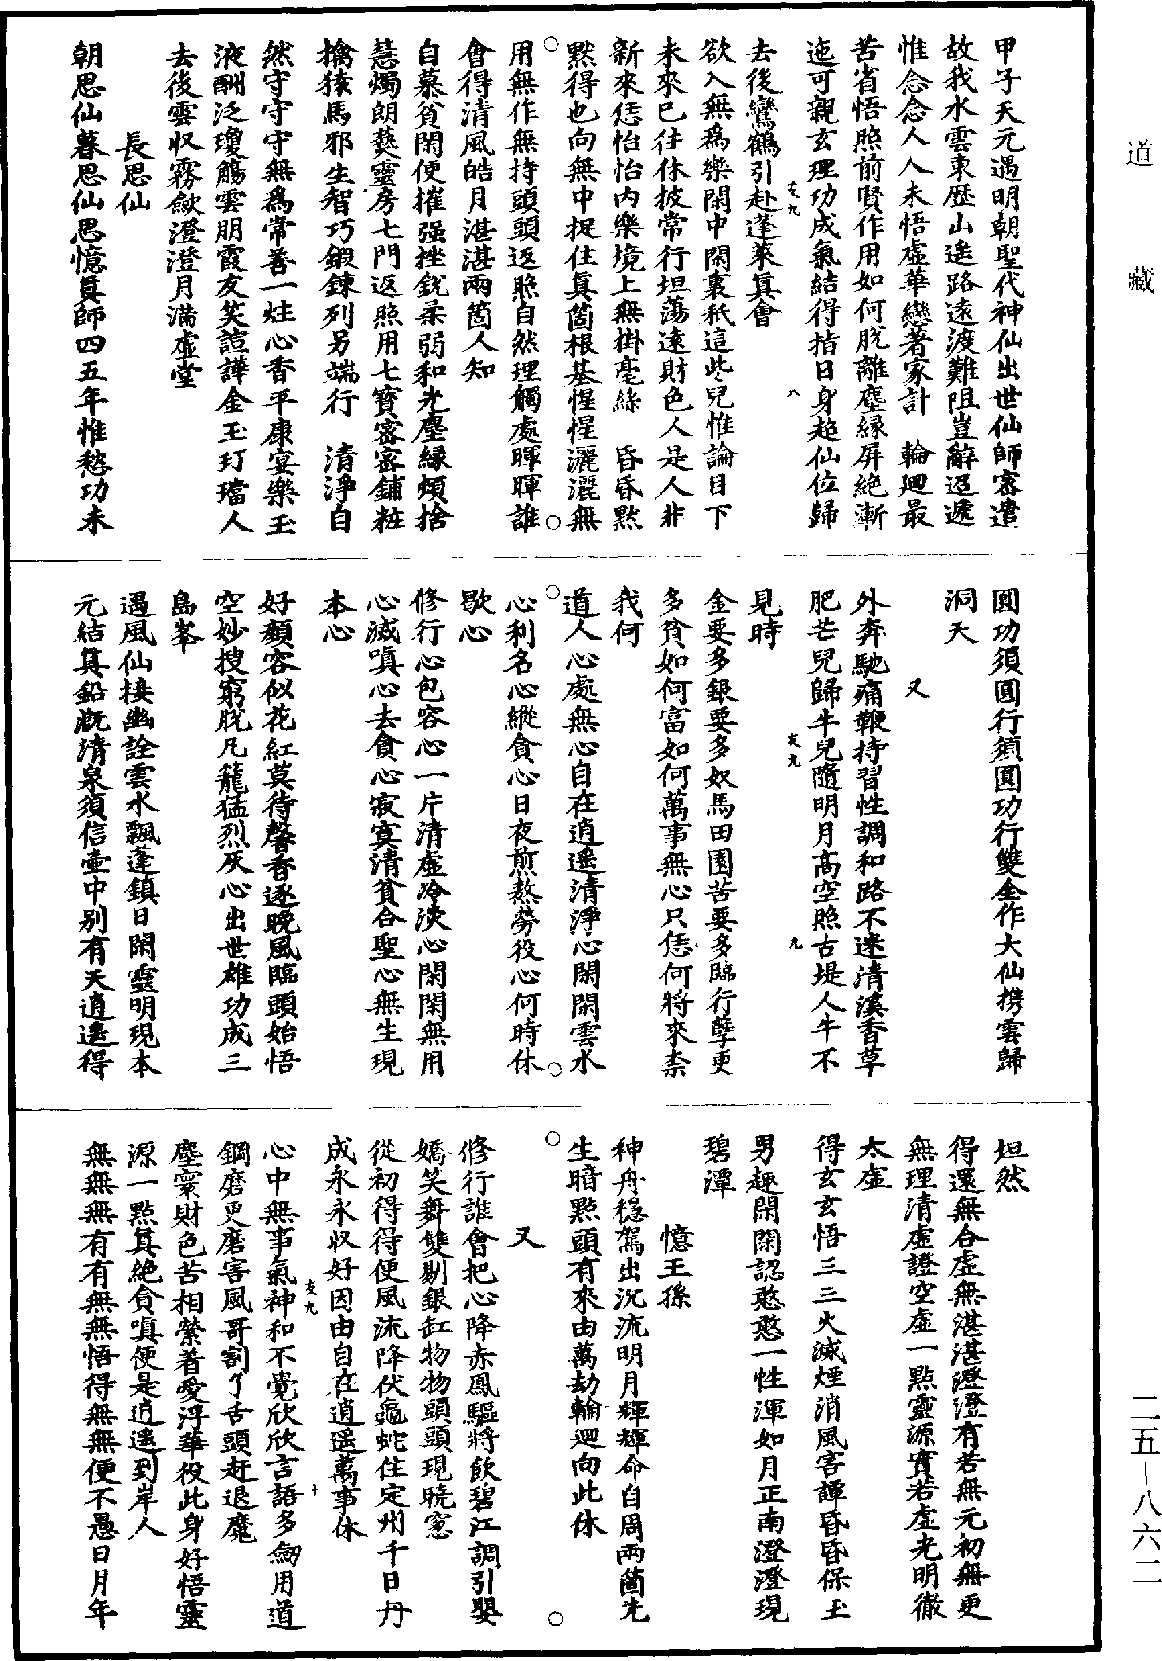 道藏
甲子天元遇明朝聖代神仙出世仙師密遣
故我水雲東歷山遙路遠渡難阻豈辭迢遞
惟念念人人未悟虛華戀著家計　輪廻最
苦省悟照前賢作用如何脫離塵緣屏絕漸
迤可親玄理功成氣結得指日身超仙位歸
去後鸞鶴引赴蓬萊眞會
欲入無爲樂閑中閑裏秖這些兒惟論目下
未來已往休披常行坦蕩遠財色人是人非
新來恁怡怡内樂境上無掛毫絲　昏昏黙
黙得也向無中捉住眞箇根基惺惺灑灑無
用無作無持頭頭返照自然理觸處暉暉誰
會得清風皓月湛湛兩箇人知
自慕貧閑便摧强挫銳柔弱和光塵緣頓捨
慧燭朗㸑靈房七門返照用七寳密密鋪粧
擒猿馬邪生智巧鍛鍊列另端行　清淨自
然守守守無爲常善一炷心香平康宴樂玉
液酬泛瓊觴雲朋霞友笑諠譁金玉玎璫人
去後雲収霧歛澄澄月滿虛堂
長思仙
朝思仙暮思仙思憶眞師四五年惟愁功未
圓功須圓行須圓功行雙全作大仙携雲歸
洞天
又
外奔馳痛鞭持習性調和路不迷清溪香草
肥芒兒歸牛兒隨明月高空照古堤人牛不
見時
金要多銀要多奴馬田園苦要多臨行孽更
多貧如何富如何萬事無心只恁何將來柰
我何
道人心處無心自在逍遥清淨心閑閑雲水
心利名心縱貪心日夜煎熬勞役心何時休
歇心
修行心包容心一片清虛冷淡心閑閑無用
心滅嗔心去貪心寂寞清貧合聖心無生現
本心
好顏容似花紅莫待馨香逐晚風臨頭始悟
空妙搜窮脫凡籠猛烈灰心出世雄功成三
島峯
遇風仙接幽詮雲水飄蓬鎮日閑靈明現本
元結眞鉛漑清泉須信壷中别有天逍遥得
坦然
得還無合虛無湛湛澄澄有若無元初無更
無理清虛證空虛一點靈源實若虛光明徹
太虛
得玄玄悟三三火滅煙消風害譚昏昏保玉
男趣閑閑認憨憨一性渾如月正南澄澄現
碧潭
憶王孫
神舟穩駕出沉流明月輝輝命自周兩箇先
生暗點頭有來由萬劫輪廻向此休
又
修行誰會把心降赤鳳驅將飲碧江調引嬰
嬌笑舞雙剔銀缸物物頭頭現曉窻
從初得得便風流降伏龜蛇住定州千日丹
成永永収好因由自在逍遥萬事休
心中無事氣神和不覺欣欣言語多劒用道
鋼磨更磨害風哥割了舌頭赶退魔
塵寰財色苦相縈着愛浮華役此身好悟靈
源一點眞絶貪嗔便是逍遥到岸人
無無無有有無無悟得無無便不愚日月年
二五－八六二